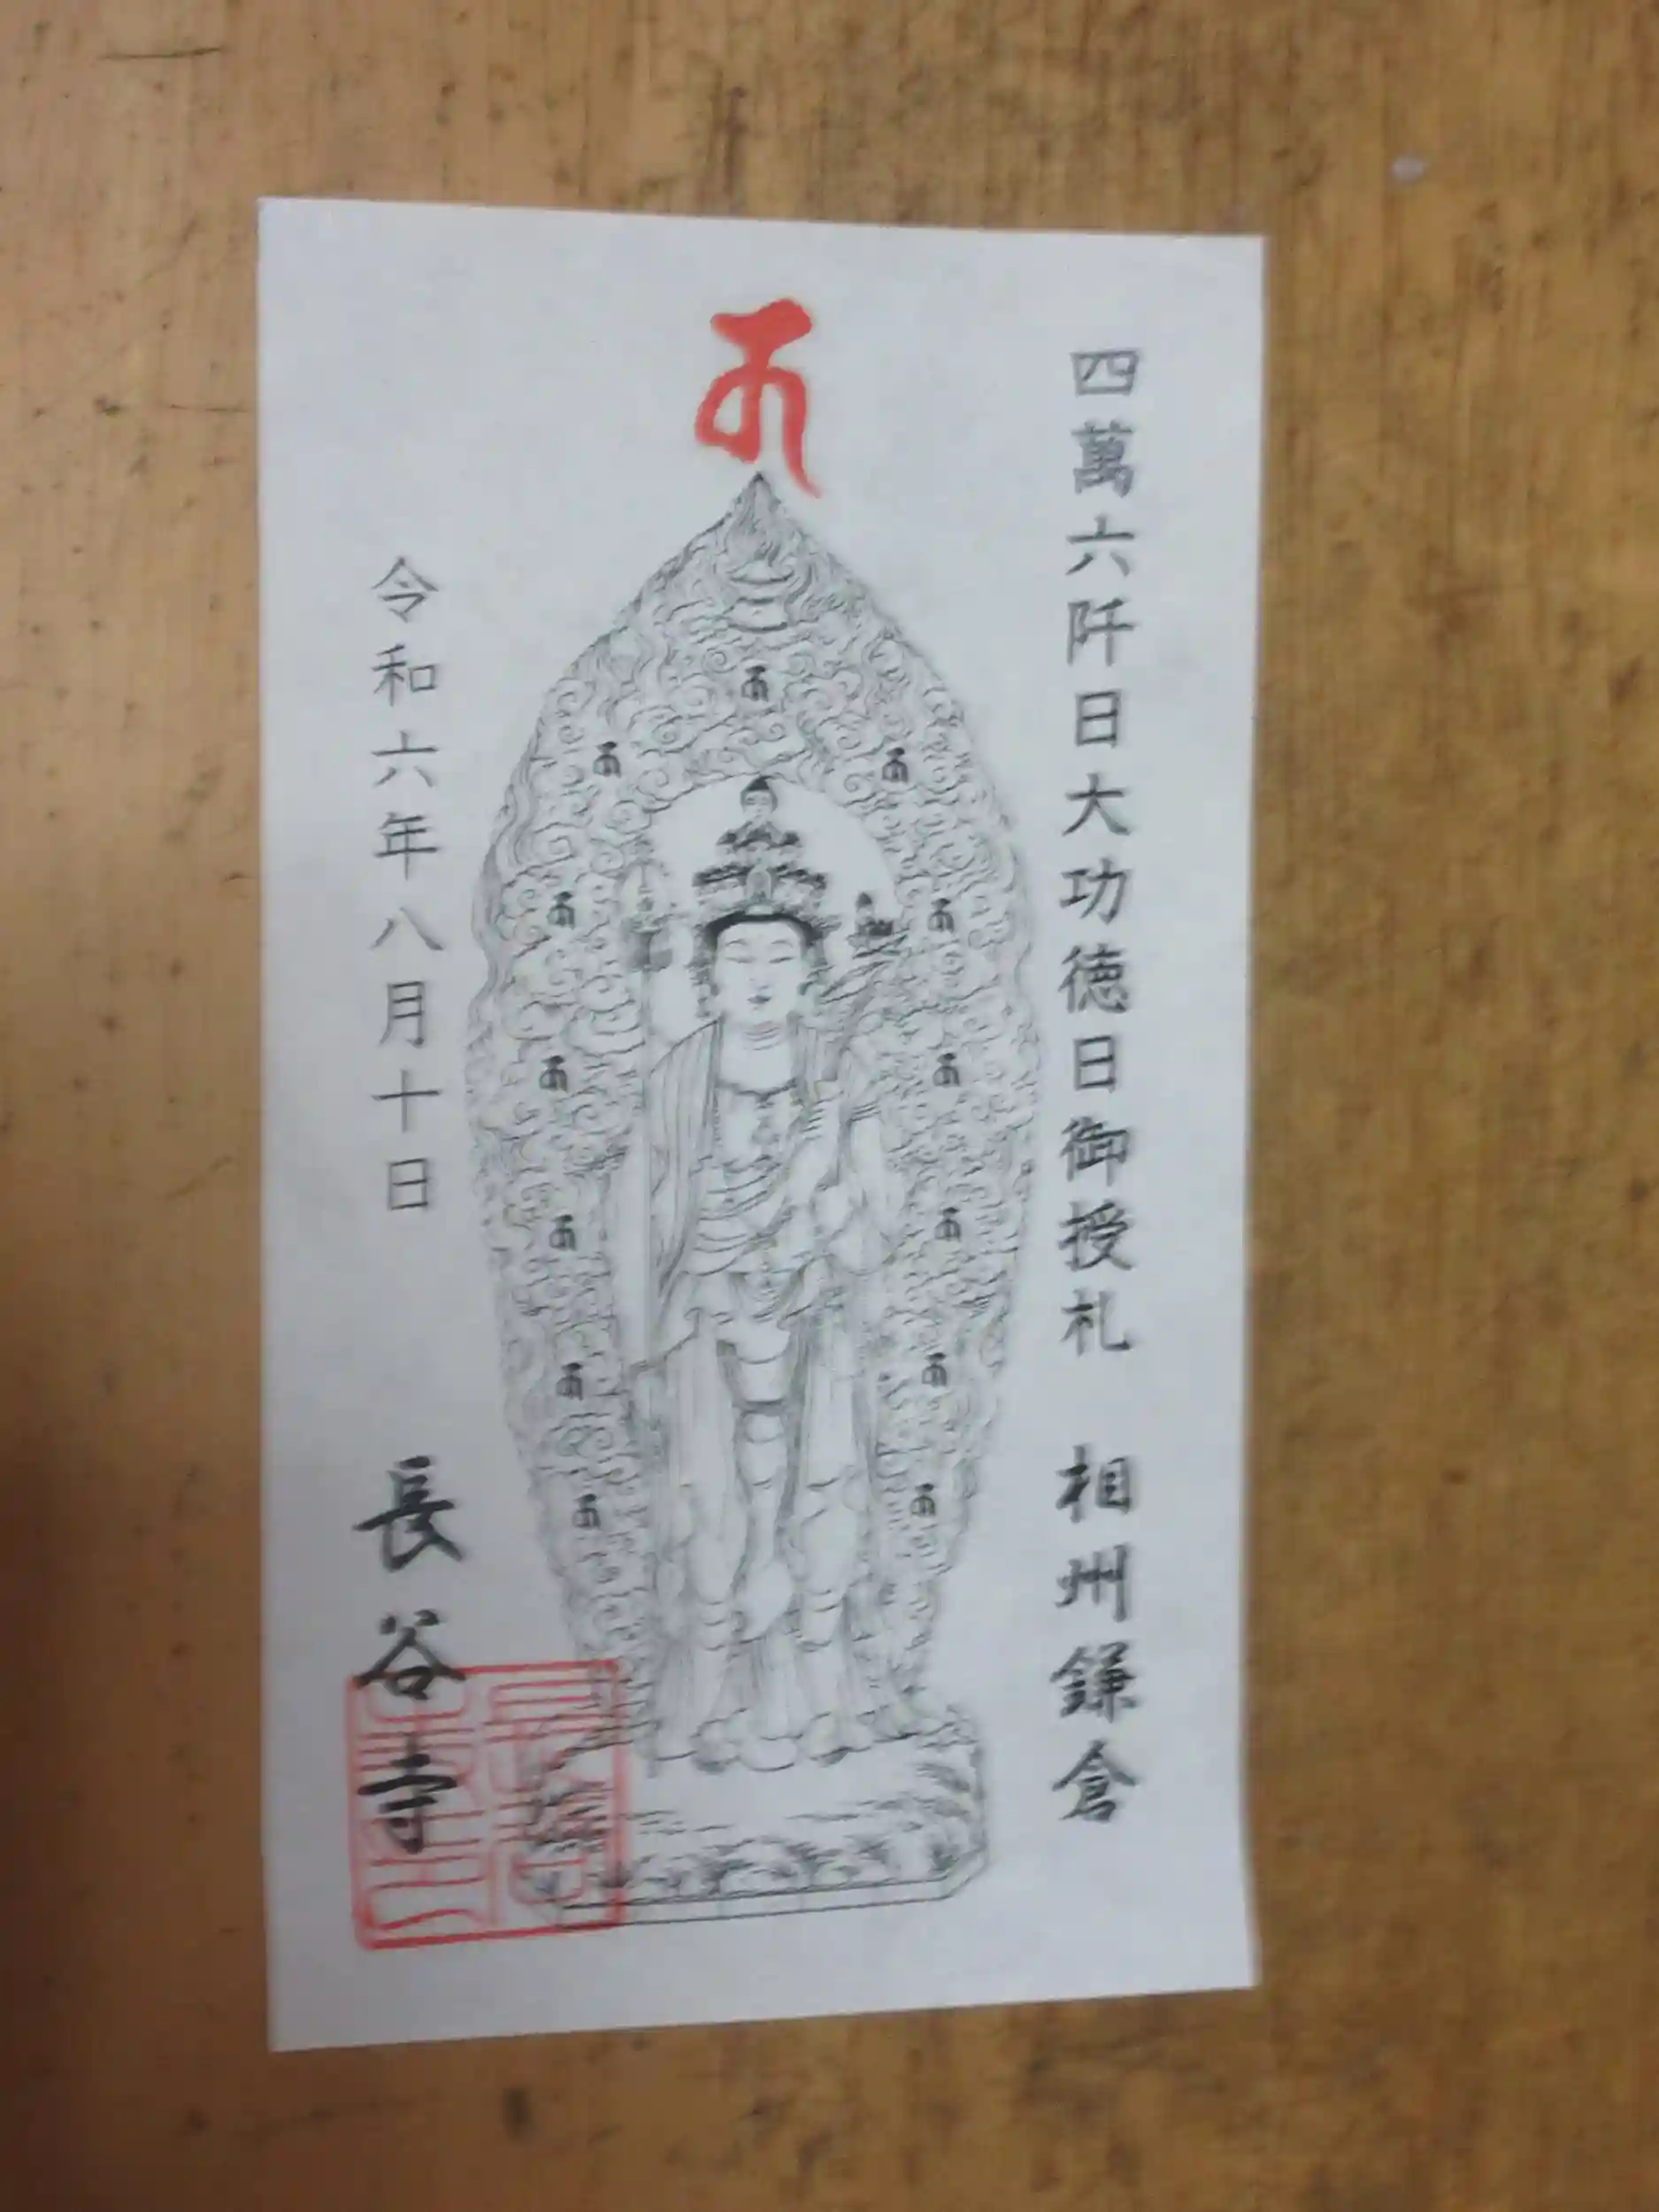 四萬六阡日大功徳日御授札 相州鎌倉
令和六年八月十日 長谷寺